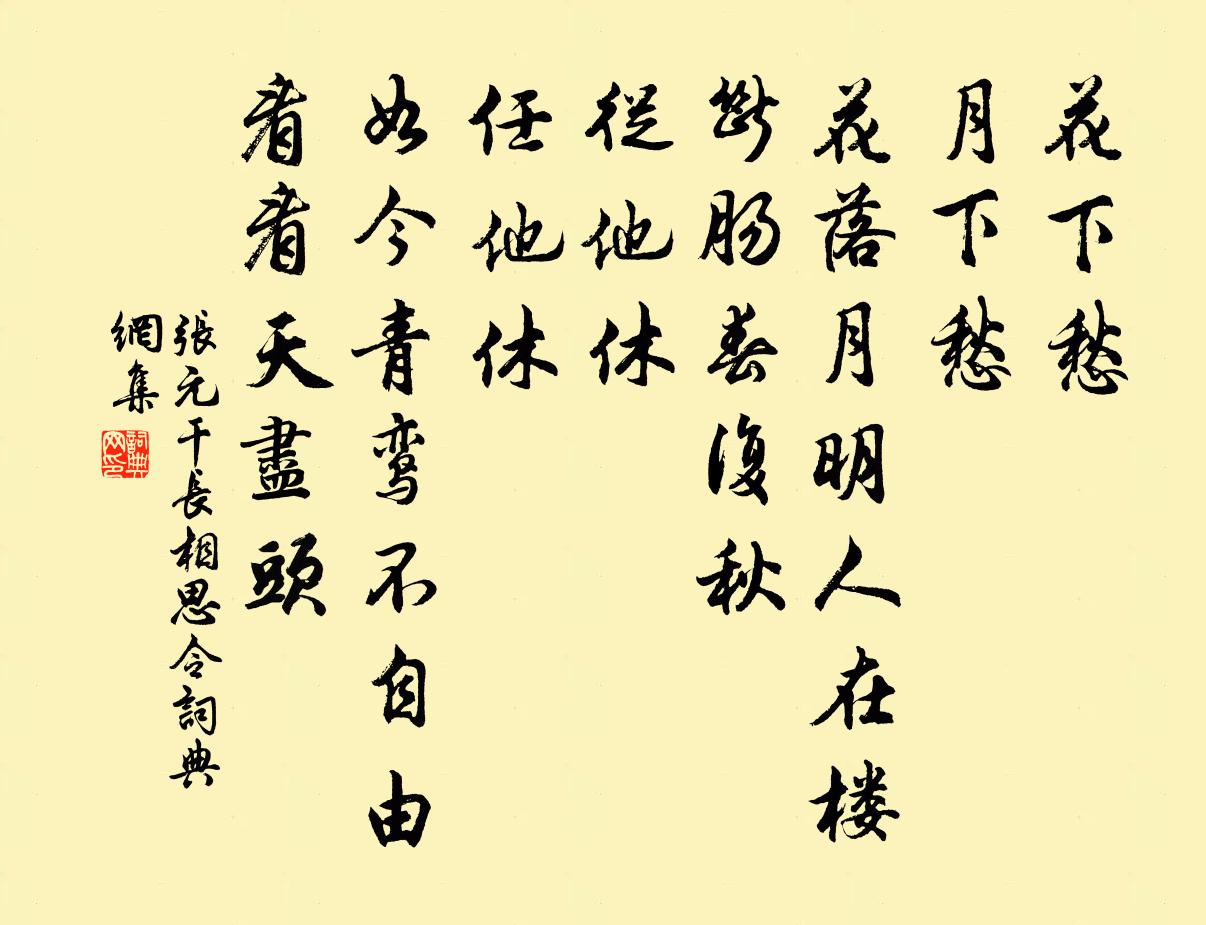 花下愁
月下愁
花落月明人在楼
斷腸春復秋
從他休
任他休
如今青鸾不自由
看看天盡頭
張元干長相思令詞典
網集
詞典网印